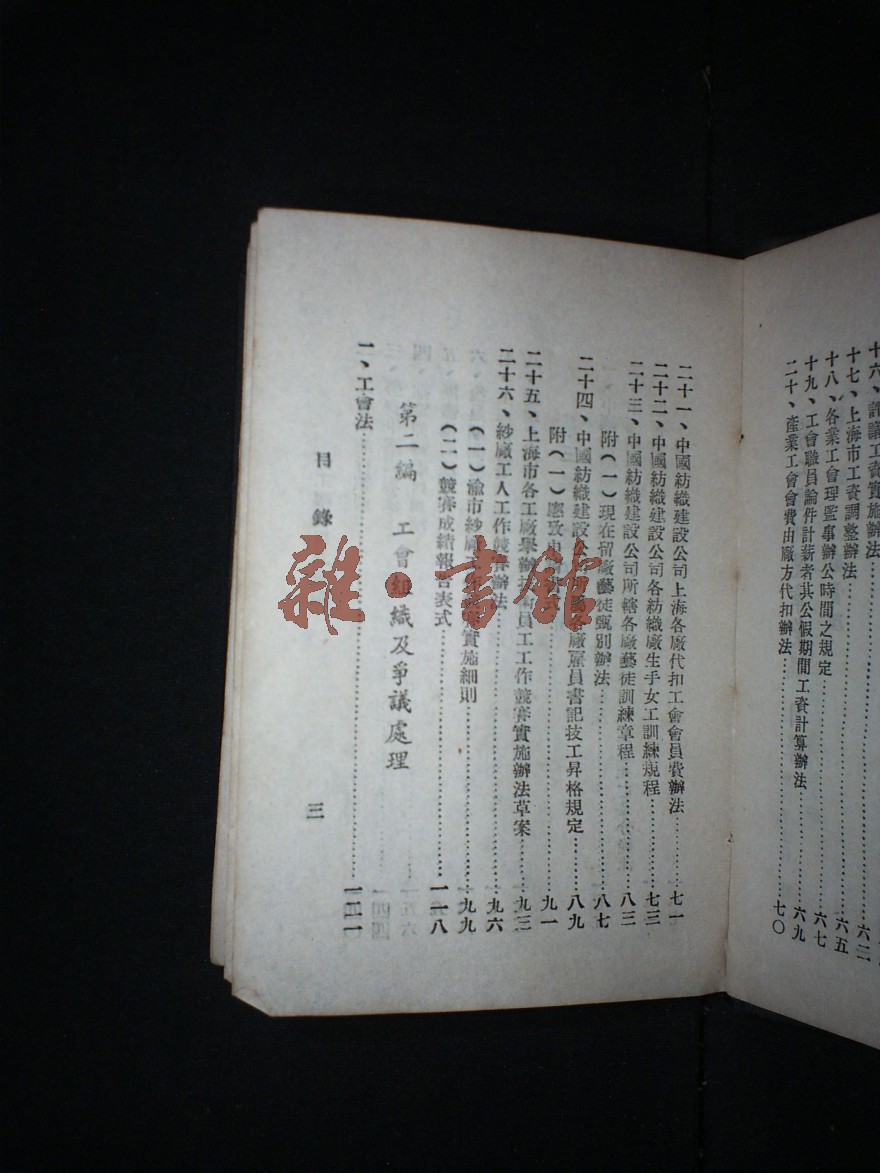 十六、評議工資實施辦法
十七、上海市工資調整辦法……六二
十八、各業工會理監事辦公時間之規定……六五
十九、工會職員論件計薪者其公假期間工資計算辦法……六七
二十、產業工會會費由廠方代扣辦法……六九
七〇
二十一、中國紡織建設公司上海各廠代扣工會會員費辦法……七一
二十二、中國紡織建設公司各紡織廠生手女工訓練規程……七三
二十三、中國紡織建設公司所轄各廠藝徒訓練章程……八三
附(一)現在留廠藝徒甄別辦法……八七
二十四、中國紡織建設公司所屬各廠雇員書記技工昇格規定……八九
附(一)……九一
二十五、上海市各工廠舉辦技術員工工作競賽實施辦法草案……九三
二十六、紗廠工人工作競賽辦法……九六
(一)渝市紗廠工……實施細則……九九
(二)競賽成績報告表式……一一八
第二編 工會組織及爭議處理
一、工會法……一二一
目錄
三
雜·書館